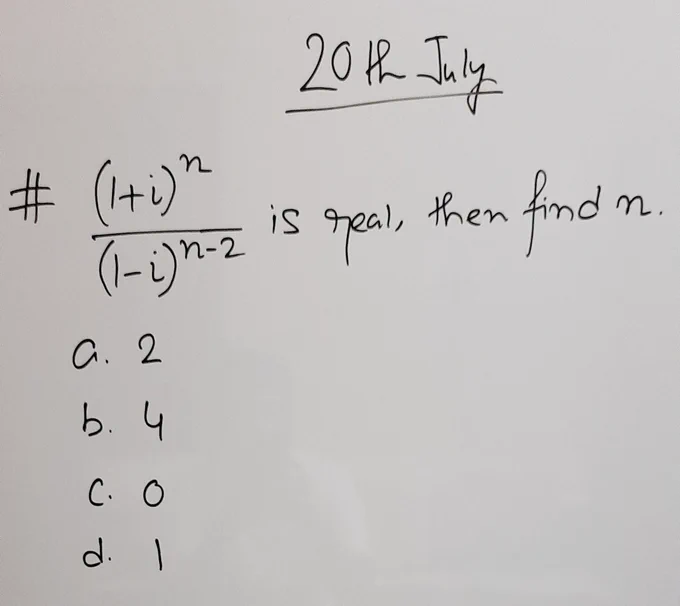 20th July
# (1+i)^n / (1-i)^{n-2} is real, then find n.
a. 2
b. 4
c. 0
d. 1